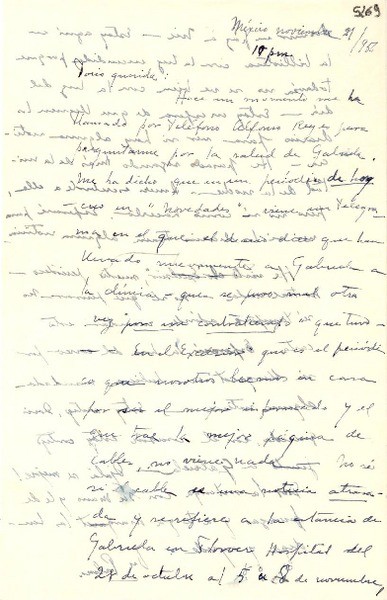 5269
México, noviembre 21/952
10 pm.
Doris querida:
Hace un momento me ha
llamado por teléfono Alfonso Reyes para
preguntarme por la salud de Gabriela.
Me ha dicho que en un periódico de hoy,
en "Novedades", viene un telegra-
ma en el que se dice que han
llevado nuevamente a Gabriela a
la clínica, que se puso mal otra
vez por un contratiempo que tuvo
En el que es el periódico
que nosotros en casa
por ser el mejor informado y el
que trae la mejor página de
cables, no viene nada. No sé
si el cable es una noticia atrasa-
da y se refiere a la estancia de
Gabriela en Flower Hospital del
28 de octubre al 5 u 8 de noviembre,